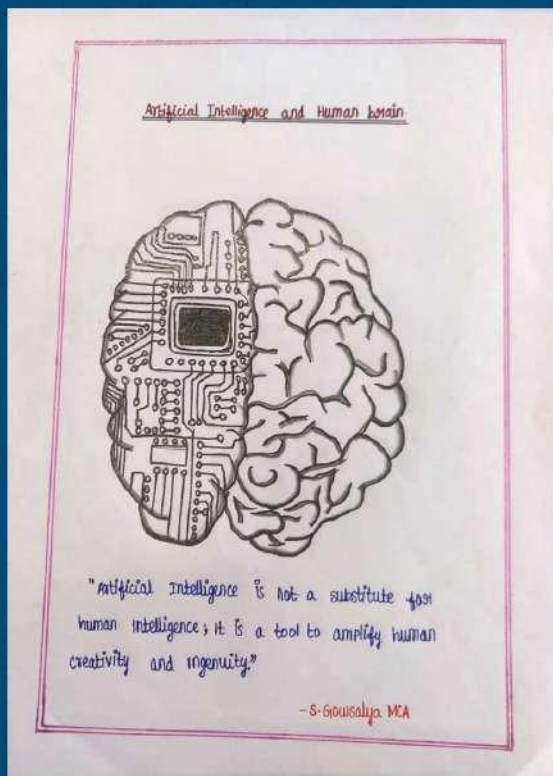 Artificial Intelligence and Human brain
"Artificial Intelligence is not a substitute for
human intelligence; it is a tool to amplify human
creativity and ingenuity."
- S. Gowsalya MCA